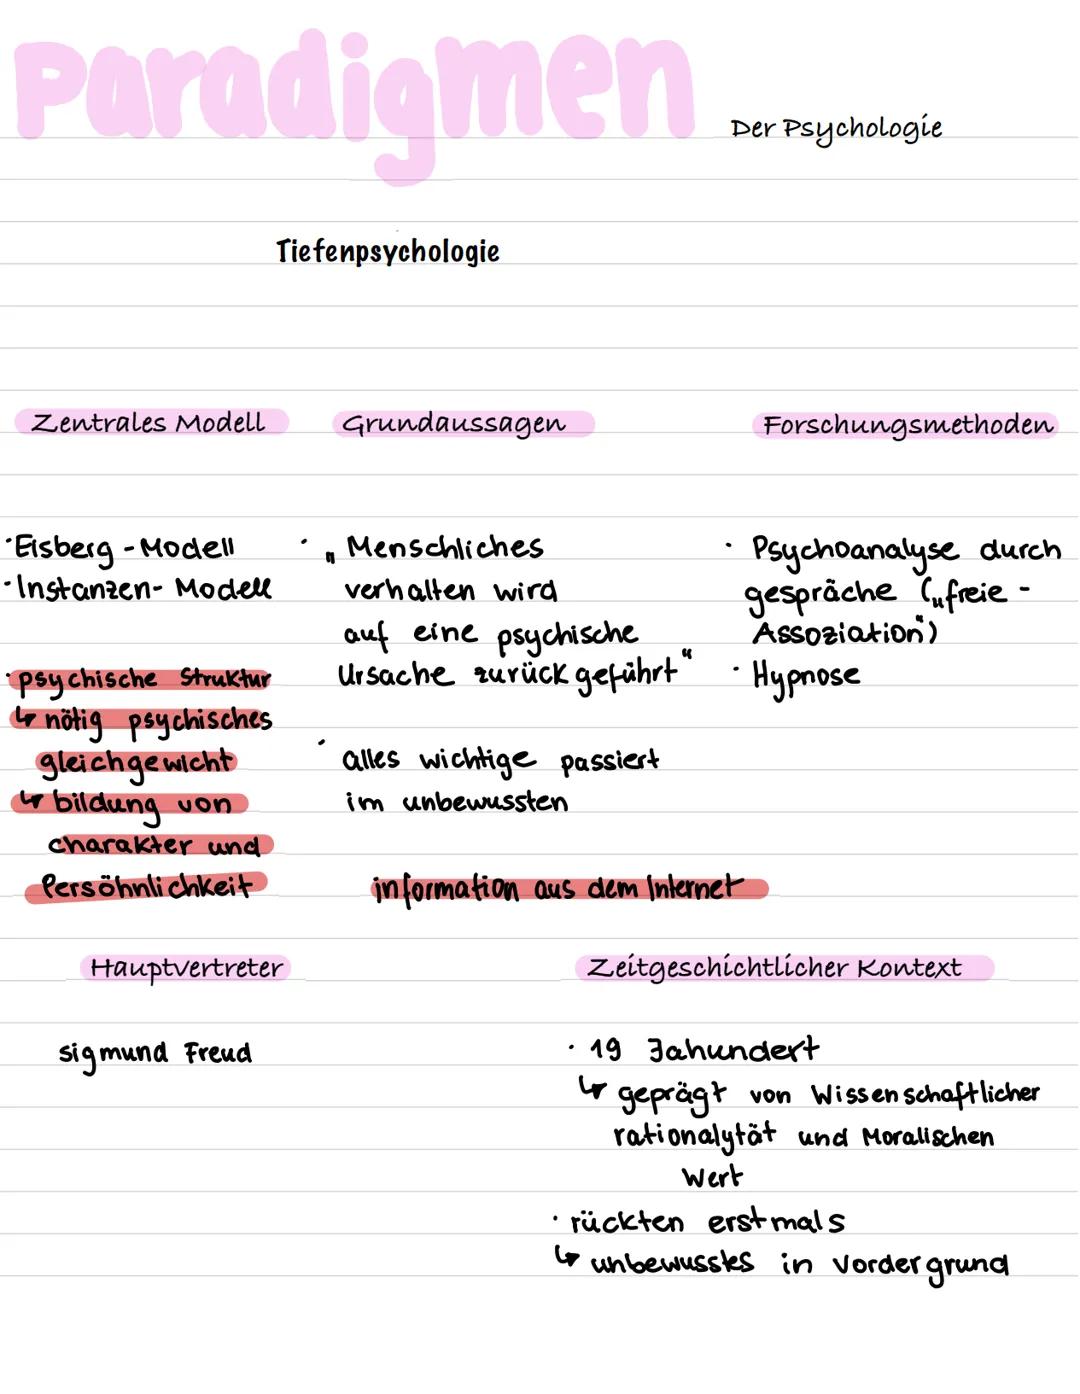 Paradigmen
Der Psychologie
Tiefenpsychologie
Zentrales Modell
· Eisberg - Modell
· Instanzen- Modell
· psychische Struktur
↳ nötig psychisches
gleichgewicht
↳ bildung von
charakter und
Persöhnlichkeit
Grundaussagen
· „ Menschliches
verhalten wird
auf eine psychische
Ursache zurück geführt“
· alles wichtige passiert
im unbewussten
information aus dem Internet
Forschungsmethoden
· Psychoanalyse durch
gespräche („freie -
Assoziation“)
· Hypnose
Hauptvertreter
sigmund Freud
Zeitgeschichtlicher Kontext
· 19 Jahundert
↳ geprägt von Wissenschaftlicher
rationalytät und Moralischen
Wert
· rückten erstmals
↳ unbewusstes in Vordergrund